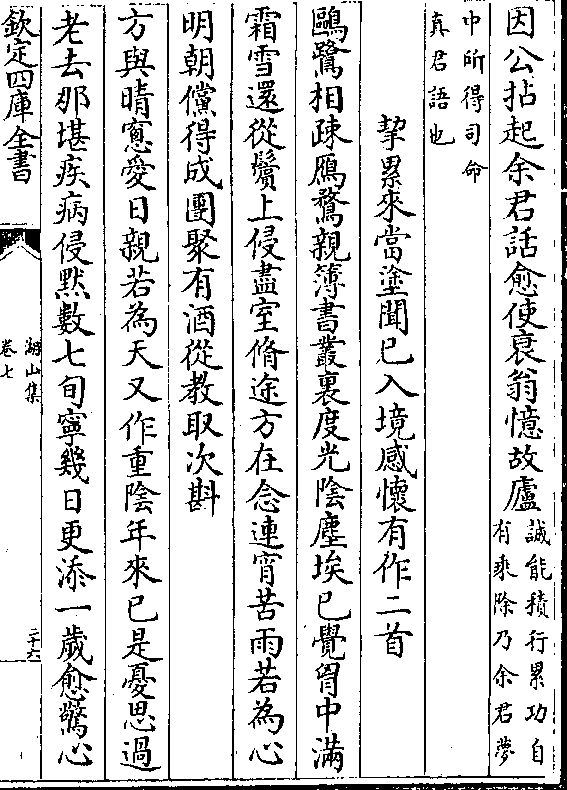 因公拈起余君話愈使衰翁憶故廬誠能積行累功自
有乘除乃余君夢
中所得司命
真君語也
挈累來當塗聞已入境感懷有作二首
鷗鷺相疎鴈鶩親簿書叢裏度光陰塵埃已覺胷中滿
霜雪還從鬢上侵盡室脩途方在念連宵苦雨若為心
明朝儻得成團聚有酒從教取次斟
方與晴窻愛日親若為天又作重陰年來已是憂思過
老去那堪疾病侵默數七旬寧幾日更添一歲愈驚心
欽定四庫全書
湖山集
卷七
二十六